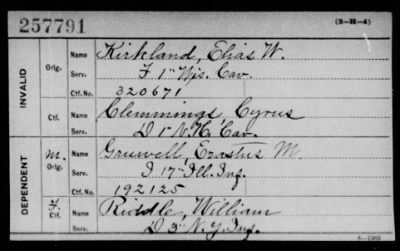 257791
(3-H-4)
INVALID
Orig.
Name Kirkland, Elias W.
Serv. F 1" Wis. Cav.
Ctf. No. 320671
Ctf.
Name Clemmings, Cyrus
Serv. D 1" N.H. Cav.
DEPENDENT
M. Orig.
Name Gruwell, Erastus M.
Serv. I 17" Ill. Inf.
Ctf. No. 192125
F. Ctf.
Name Riddle, William
Serv. D 3" N.Y. Inf.